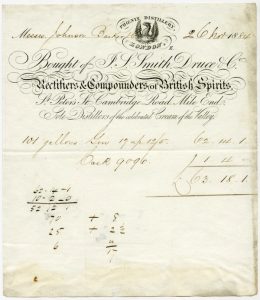 PHOENIX DISTILLERY
LONDON. E
Messrs Johnson 26 Nov 1884
Bought of J. J. Smith, Druce & Co.
Rectifiers & Compounders of British Spirits,
St. Peter's St. Cambridge Road, Mile End,
Sole Distillers of the celebrated Cream of the Valley.
101 gallons Gin 17 up 12/5 62 14 1
Cask 9096 1 4 -
63 18 1
70 + 8
25 + 2½
6